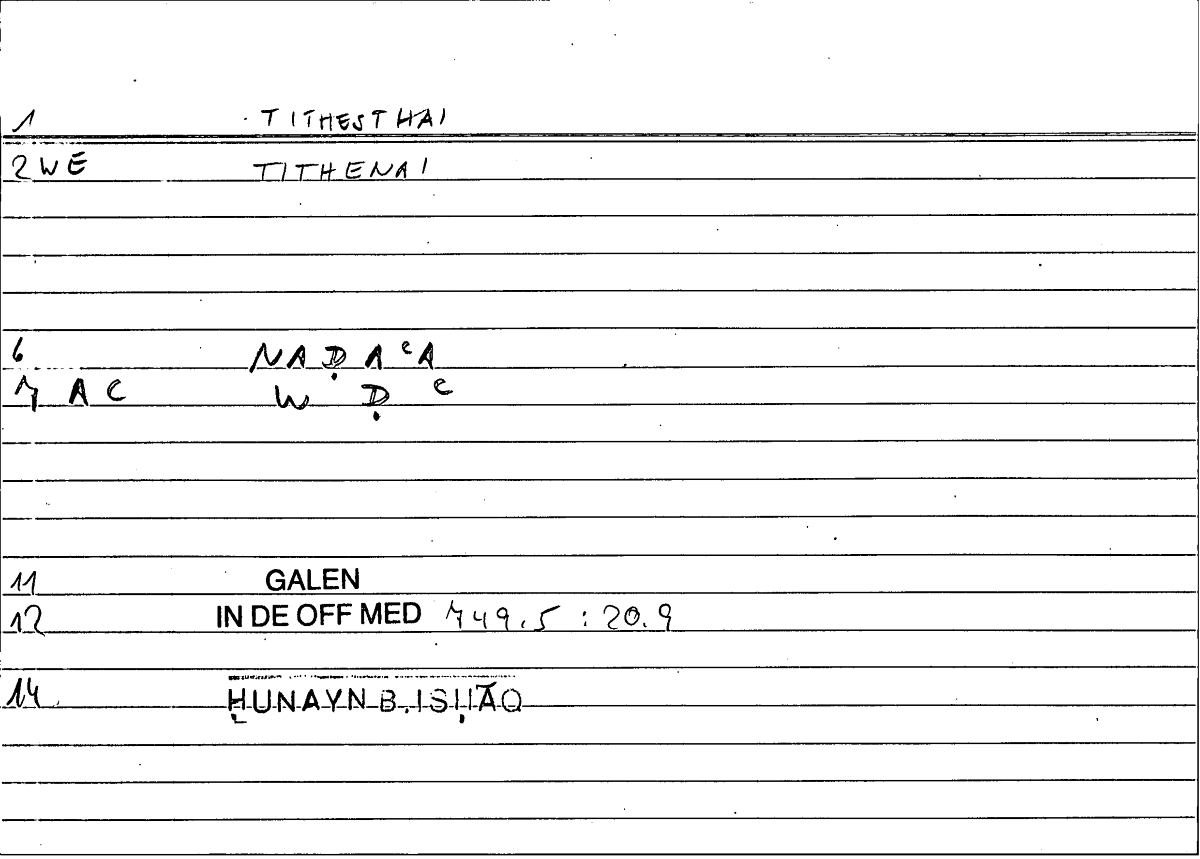 1 TITHESTHAI
2 WE TITHENAI
6 NAḌAᶜA
7 A C W Ḍ ᶜ
11 GALEN
12 IN DE OFF MED 749.5 : 20.9
14 ḤUNAYN B. ISḤĀQ